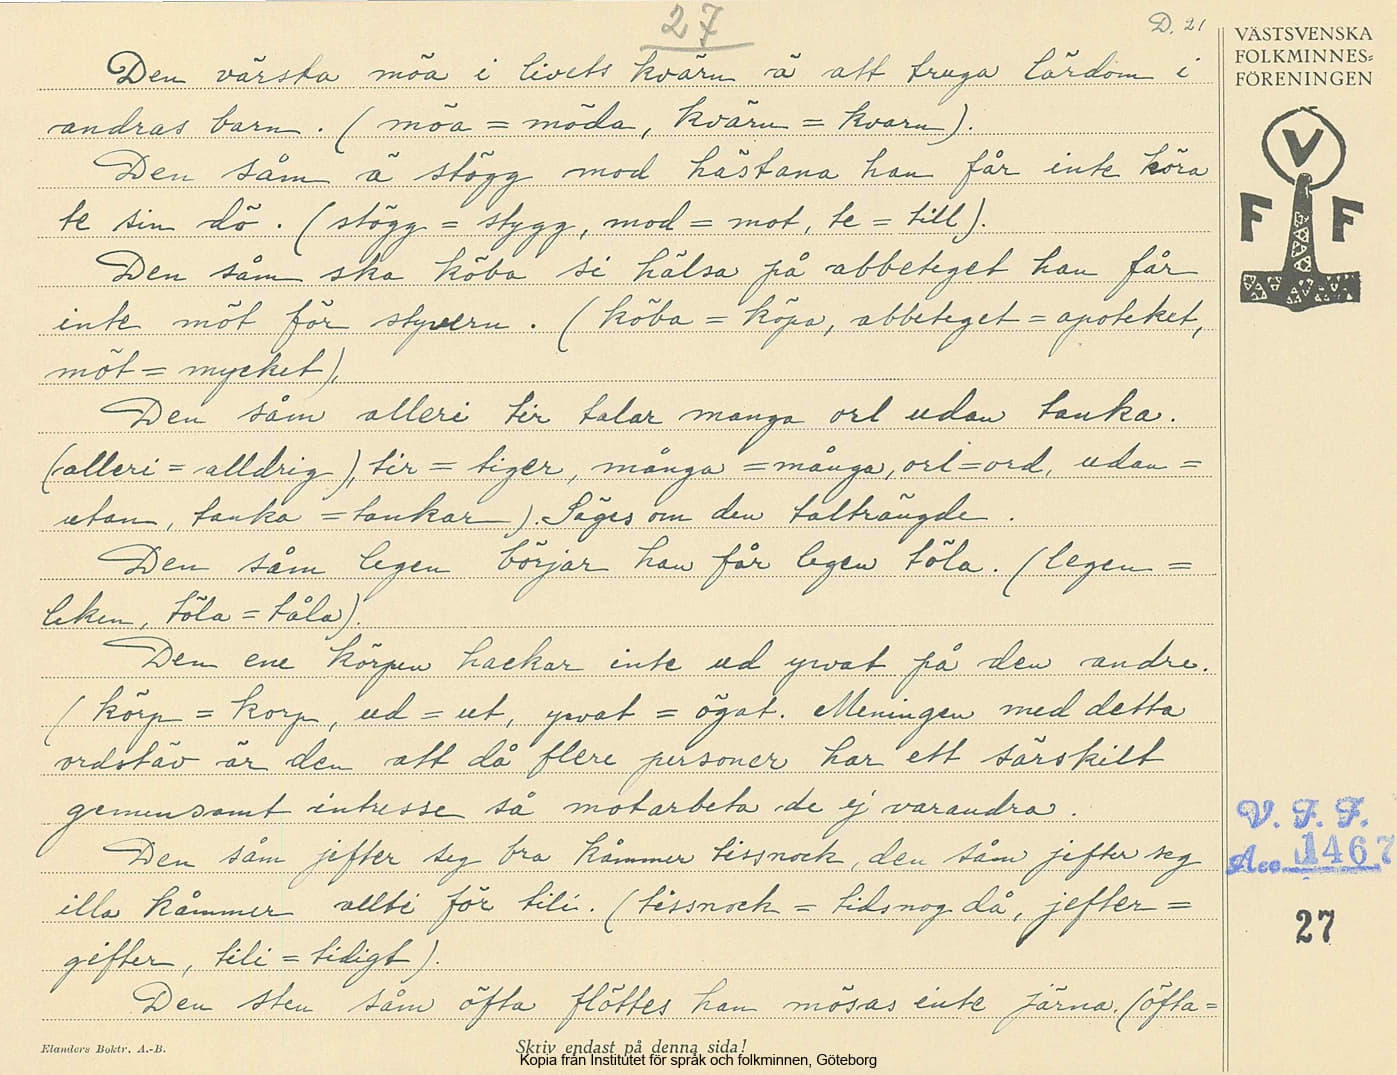 27
D. 21
Den värsta möa i livets kvärn ä att truga lärdom i
andras barn. (möa = möda, kvärn = kvarn).
Den såm ä stögg mod hästana han får inte köra
te sin dö. (stögg = stygg, mod = mot, te = till).
Den såm ska köba si hälsa på abbeteget han får
inte möt för styvern. (köba = köpa, abbeteget = apoteket,
möt = mycket).
Den såm alleri tir talar manga orl udan tanka.
(alleri = alldrig), tir = tiger, många = många, orl = ord, udan =
utan, tanka = tankar). Säges om den talträngde.
Den såm legen börjar han får legen töla. (legen =
leken, töla = tåla).
Den ene körpen hackar inte ud yvat på den andre.
(körp = korp, ud = ut, yvat = ögat. Meningen med detta
ordstäv är den att då flere personer har ett särskilt
gemensamt intresse så motarbeta de ej varandra.
Den såm jefter seg bra kåmmer tissnock, den såm jefter seg
illa kåmmer allti för tili. (tissnock = tidsnog då, jefter =
gifter, tili = tidigt).
Den sten såm öfta flöttes han mösas inte järna. (öfta =
VÄSTSVENSKA
FOLKMINNES=
FÖRENINGEN
V
F F
V. F. F.
Acc. 1467
27
Elanders Boktr. A.-B.
Skriv endast på denna sida!
Kopia från Institutet för språk och folkminnen, Göteborg